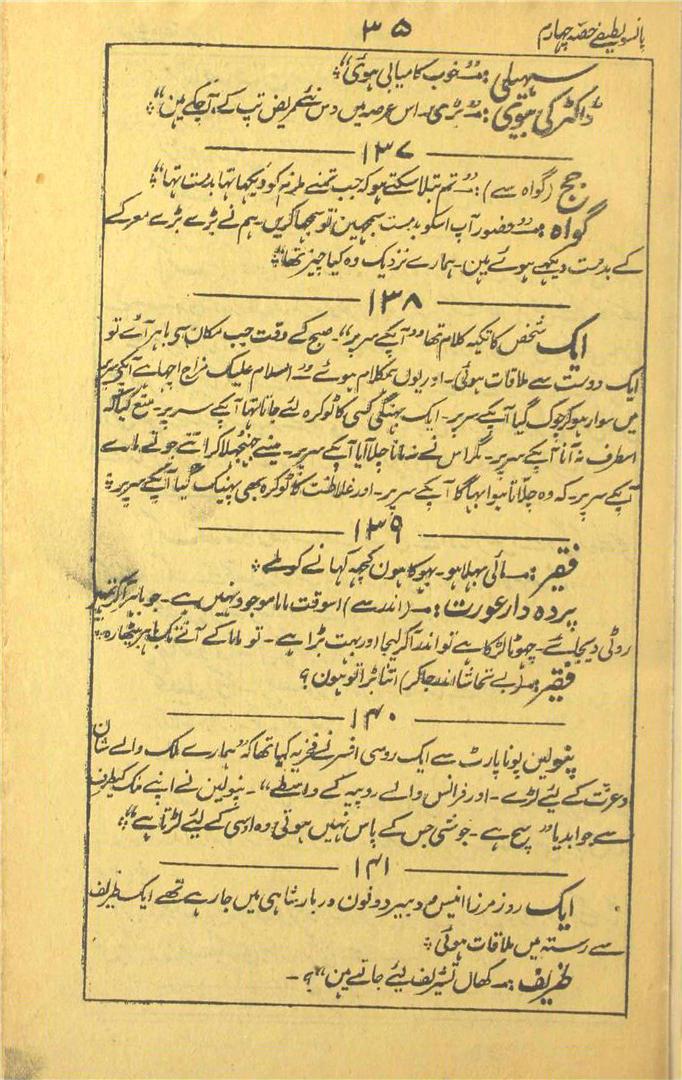 پانسو لطیفے حصّہ چہارم
۳۵
سہیلی :۔ "خوب کامیابی ہوئی"
ڈاکٹر کی بیوی :۔ "بڑی۔ اس عرصہ میں دس نئے مریض تپ کے آ چکے ہین"
۱۳۷
جج (گواہ سے) :۔ "تم بتلا سکتے ہو کہ جب تمنے ملزم کو دیکھا تہا بدمست تہا"
گواہ :۔ "حضور آپ اسکو بدمست سمجہین تو سمجہا کریں۔ ہم نے بڑے بڑے معرکے
کے بدمست دیکہے ہوئے ہین۔ ہمارے نزدیک وہ کیا چیز تھا"
۱۳۸
ایک شخص کا تکیہ کلام تھا "آپکے سر پر"۔ صبح کے وقت جب مکان سی باہر آئے تو
ایک دوست سے ملاقات ہوئی۔ اور یوں ہمکلام ہوئے :۔ السلام علیک مزاج اچہا ہے آپکی سر پر
میں سوار ہو کر چوک گیا آپکے سر پر۔ ایک بہنگی کسی کا ٹوکرہ لئے جاتا تہا آپکے سر پر۔ منع کیا کہ
اسطرف نہ آنا آپکے سر پر۔ مگر اس نے نہ مانا چلا آیا آپکے سر پر۔ مینے جہنجہلا کر اتنے جوتے مارے
آپکے سر پر۔ کہ وہ چلّاتا ہوا بہاگا آپکے سر پر۔ اور غلاظت کا ٹوکرہ بھی پہنیک گیا آپکے سر پر
۱۳۹
فقیر :۔ مائی بہلا ہو۔ بہوکا ہون کچہہ کہانے کو ملے
پردہ دار عورت :۔ (اندر سے) اسوقت ماما موجود نہیں ہے۔ جو باہر آ کر تمہیں
روٹی دیجائے۔ چہوٹا لڑکا ہے تو اندر آ کر لیجا اور بہت بڑا ہے۔ تو ماما کے آنے تک باہر بیٹھا رہ
فقیر :۔ (بے تحاشا اندر جا کر) اتنا بڑا تو ہون؟
۱۴۰
پنولین بونا پارٹ سے ایک روسی افسر نے فخریہ کہا تھا کہ "ہمارے ملک والے شان
و عزت کے لیئے لڑتے۔ اور فرانس والے روپیہ کے واسطے"۔ پنولین نے اپنے ملک کیطرف
سے جوابدیا "سچ ہے۔ جو شی جس کے پاس نہیں ہوتی وہ اوسی کے لیئے لڑتا ہے"
۱۴۱
ایک روز مرزا انیس و دبیر دونون دربار شاہی میں جا رہے تھے ایک ظریف
سے رستہ میں ملاقات ہوئی
ظریف :۔ کھاں تشریف لیئے جاتے ہین"؟۔